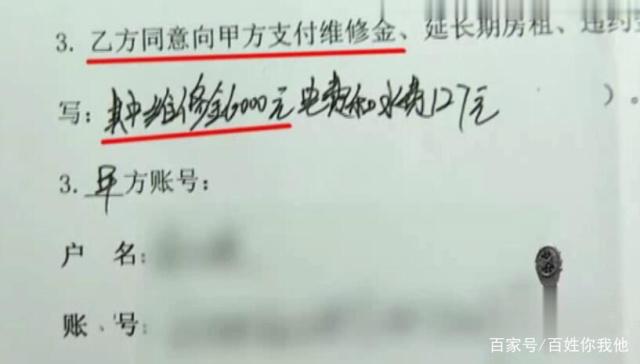 3. 乙方同意向甲方支付维修金、延长期房租、违约
写：其中维修金6000元电费和水费127元 ）。
3. 甲方账号：
户 名：
账 号：
百家号/百姓你我他